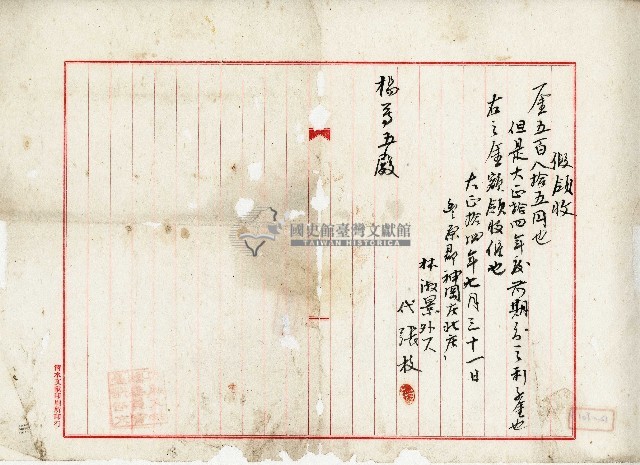 假領收
一金五百八拾五円也
但是大正拾四年度前期分之利金也
右之金額領收候也
大正拾四年七月三十一日
豐原郡神岡庄北庄
林淑景外人
代 張枝
楊子五殿
國史館臺灣文獻館
TAIWAN HISTORICA